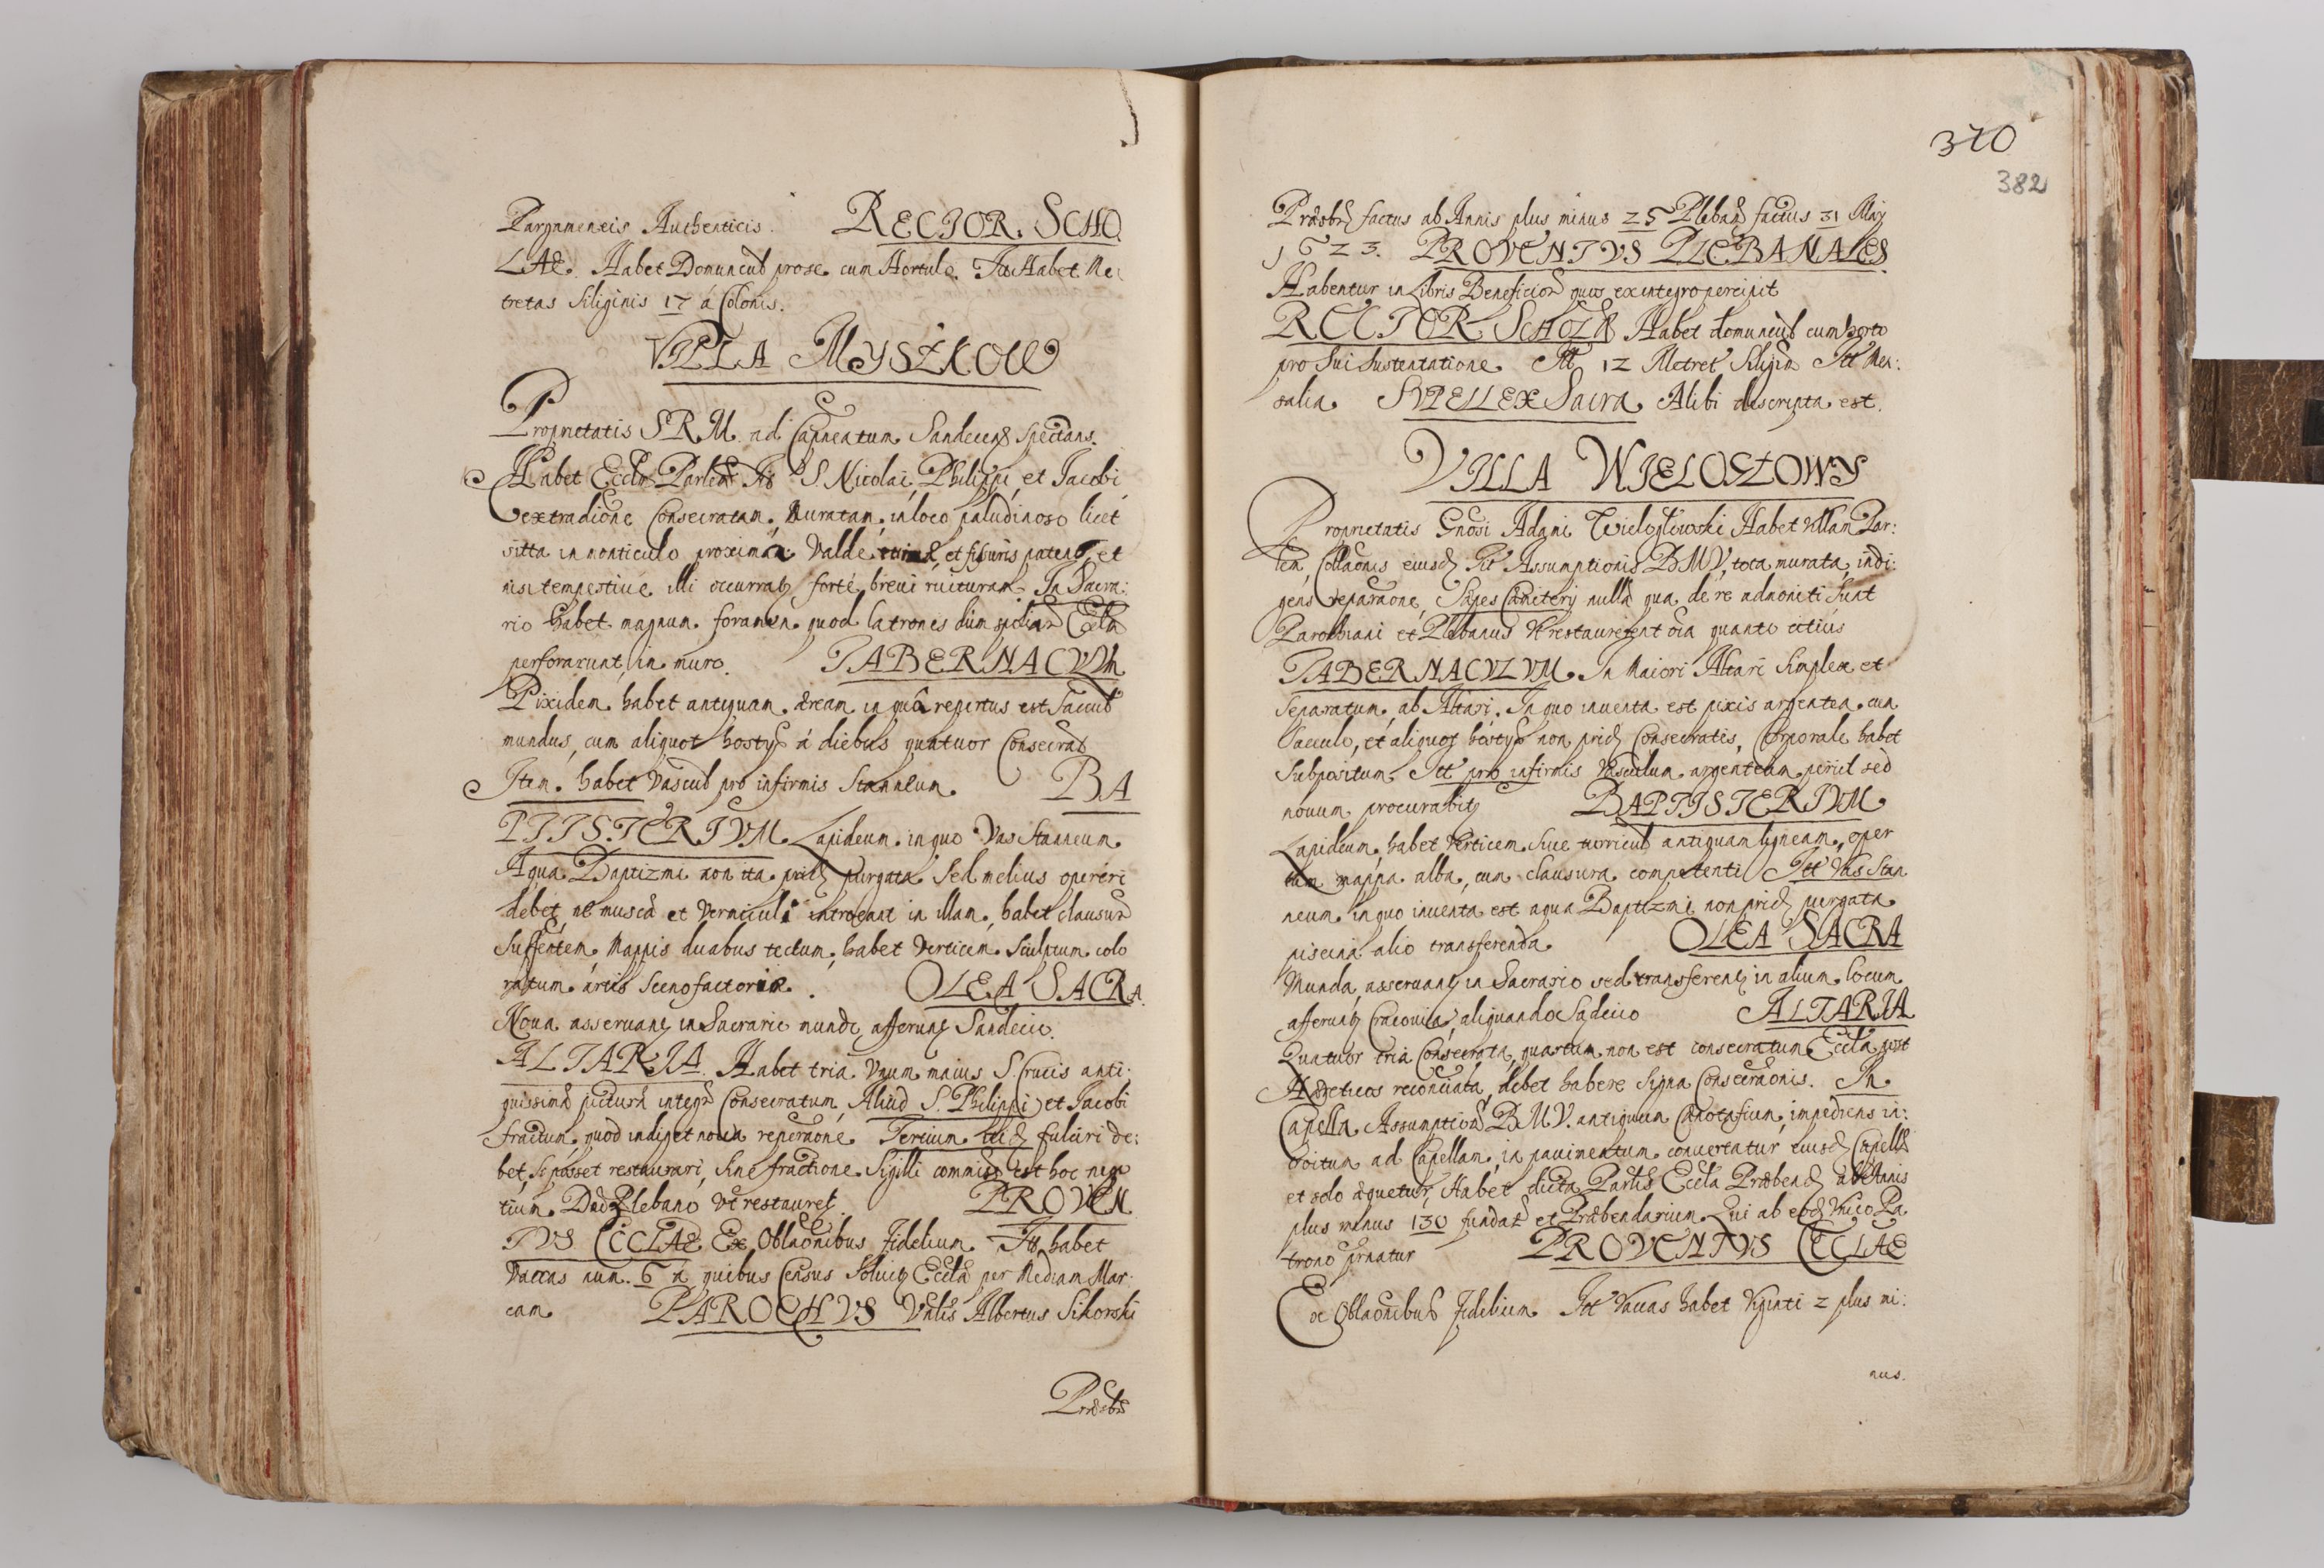 Pargameneis Authenticis. RECTOR. SCHO
LAE. Habet Domuncul pro se cum Hortulo. Itē Habet Me
tretas siliginis 17 á Colonis.
VILLA MYSZKOW
Proprietatis S R M. ad Capneatum Sandecen spectans.
Habet Eccłā Parlēm Tit S. Nicolai, Philippi, et Jacobi
ex tradione Consecratam, Muratam, in loco paludinoso licet
sitta in monticulo proxima valde et fissuris patens, et
nisi tempestiue illi occurratʒ forte breui ruituram. In Sacra:
rio habet magnum foramen quod latrones dum spoliar Eccła
perforarunt in muro. TABERNACVVM
Pixidem habet antiquam æream in quâ repertus est Saccul
mundus, cum aliquot hostys á diebus quatuor Consecrat
Item. habet vascul pro infirmis stanneum. BA
PTISTERIVM. Lapideum in quo Vas stanneum.
Aqua Baptizmi non ita prid purgata. Sed melius operiri
debet, ne muscæ et vermiculi introeant in illam, habet clausurā
Sufftentem, Mappis duabus tectum, habet Verticem sculptum colo
ratum artis scenofactoriæ. OLEA SACRA.
Noua asseruantʒ in Sacrario munde afferuntʒ Sandecio.
ALTARIA. Habet tria. Vnum maius S. Crucis anti:
quissimā picturā integrā Consecratum, Aliud S. Philippi et Jacobi
fractum, quod indiget noua reperaōne. Tertium itid fulciri de:
bet, si posset restaurari, sine fractione Sigilli commiss est hoc nego
tium. Dno Plebano vt restauretʒ. PROVEN
TVS ECCLAE Ex Oblaōnibus Fidelium. Itē habet
vaccas num. 6 á quibus Census soluitʒ Eccłā per Mediam Mar:
cam PAROCHVS Vnlis Albertus Sikorski
Præsbr
370
382
Præsbr factus ab Annis plus minus 25 Pleban factus 31 May
1623. PROVENTVS PLEBANALES
Habentur in Libris Beneficior quos ex integro percipit
RECTOR SCHOLÆ Habet domuncul cum horto
pro sui sustentatione. Itt 12 Metret Siligin Itt Men:
salia. SVPELLEX Sacra Alibi descripta est.
VILLA WIELOGLOWY
Proprietatis Gnosi Adami Wielogłowski Habet villam Par:
lem, Collaōnis eiusd Tit Assumptionis B M V, tota murata, indi:
gens reparaōne, Sæpes Cæmiterij nulla qua de re admoniti sunt
Parochiani et Plebanus vt restaurent ōia quanto citius
TABERNACVLVM. In Maiori Altari simplex et
separatum, ab Altari. In quo inuenta est pixis argentea cum
Sacculo, et aliquot hostys non prid Consecratis, Corporale habet
subpositum. Itt pro infirmis Vasculum argenteum periit sed
nouum procurabitʒ BAPTISTERIVM.
Lapideum, habet Verticem siue turricul antiquam ligneam, oper
tum mappa alba, cum clausura competenti. Itt vas stan
neum in quo inuenta est aqua Baptizmi non prid purgata.
piscina alio transferenda. OLEA SACRA
Munda, asseruantʒ in Sacrario sed transferentʒ in alium locum
afferuntʒ Cracouia, aliquando Sadecio ALTARIA
Quatuor tria Consecrata, quartum non est consecratum Eccła post
Hæreticos reconciata, debet habere signa Consecraōnis. In
Capella Assumption B M V. antiquum Canotafium, impediens in:
troitum ad Capellam, in pauimentum conuertatur eiusd Capellæ
et solo æquetur, Habet dicta Parlis Eccła Præbend ab Annis
plus minus 130 fundat et Præbendarium. Qui ab eod vnico Pa
trono prnatur PROVENTVS ECCLAE
Ex Oblaōnibus Fidelium Itt vaccas habet viginti 2 plus mi:
nus.